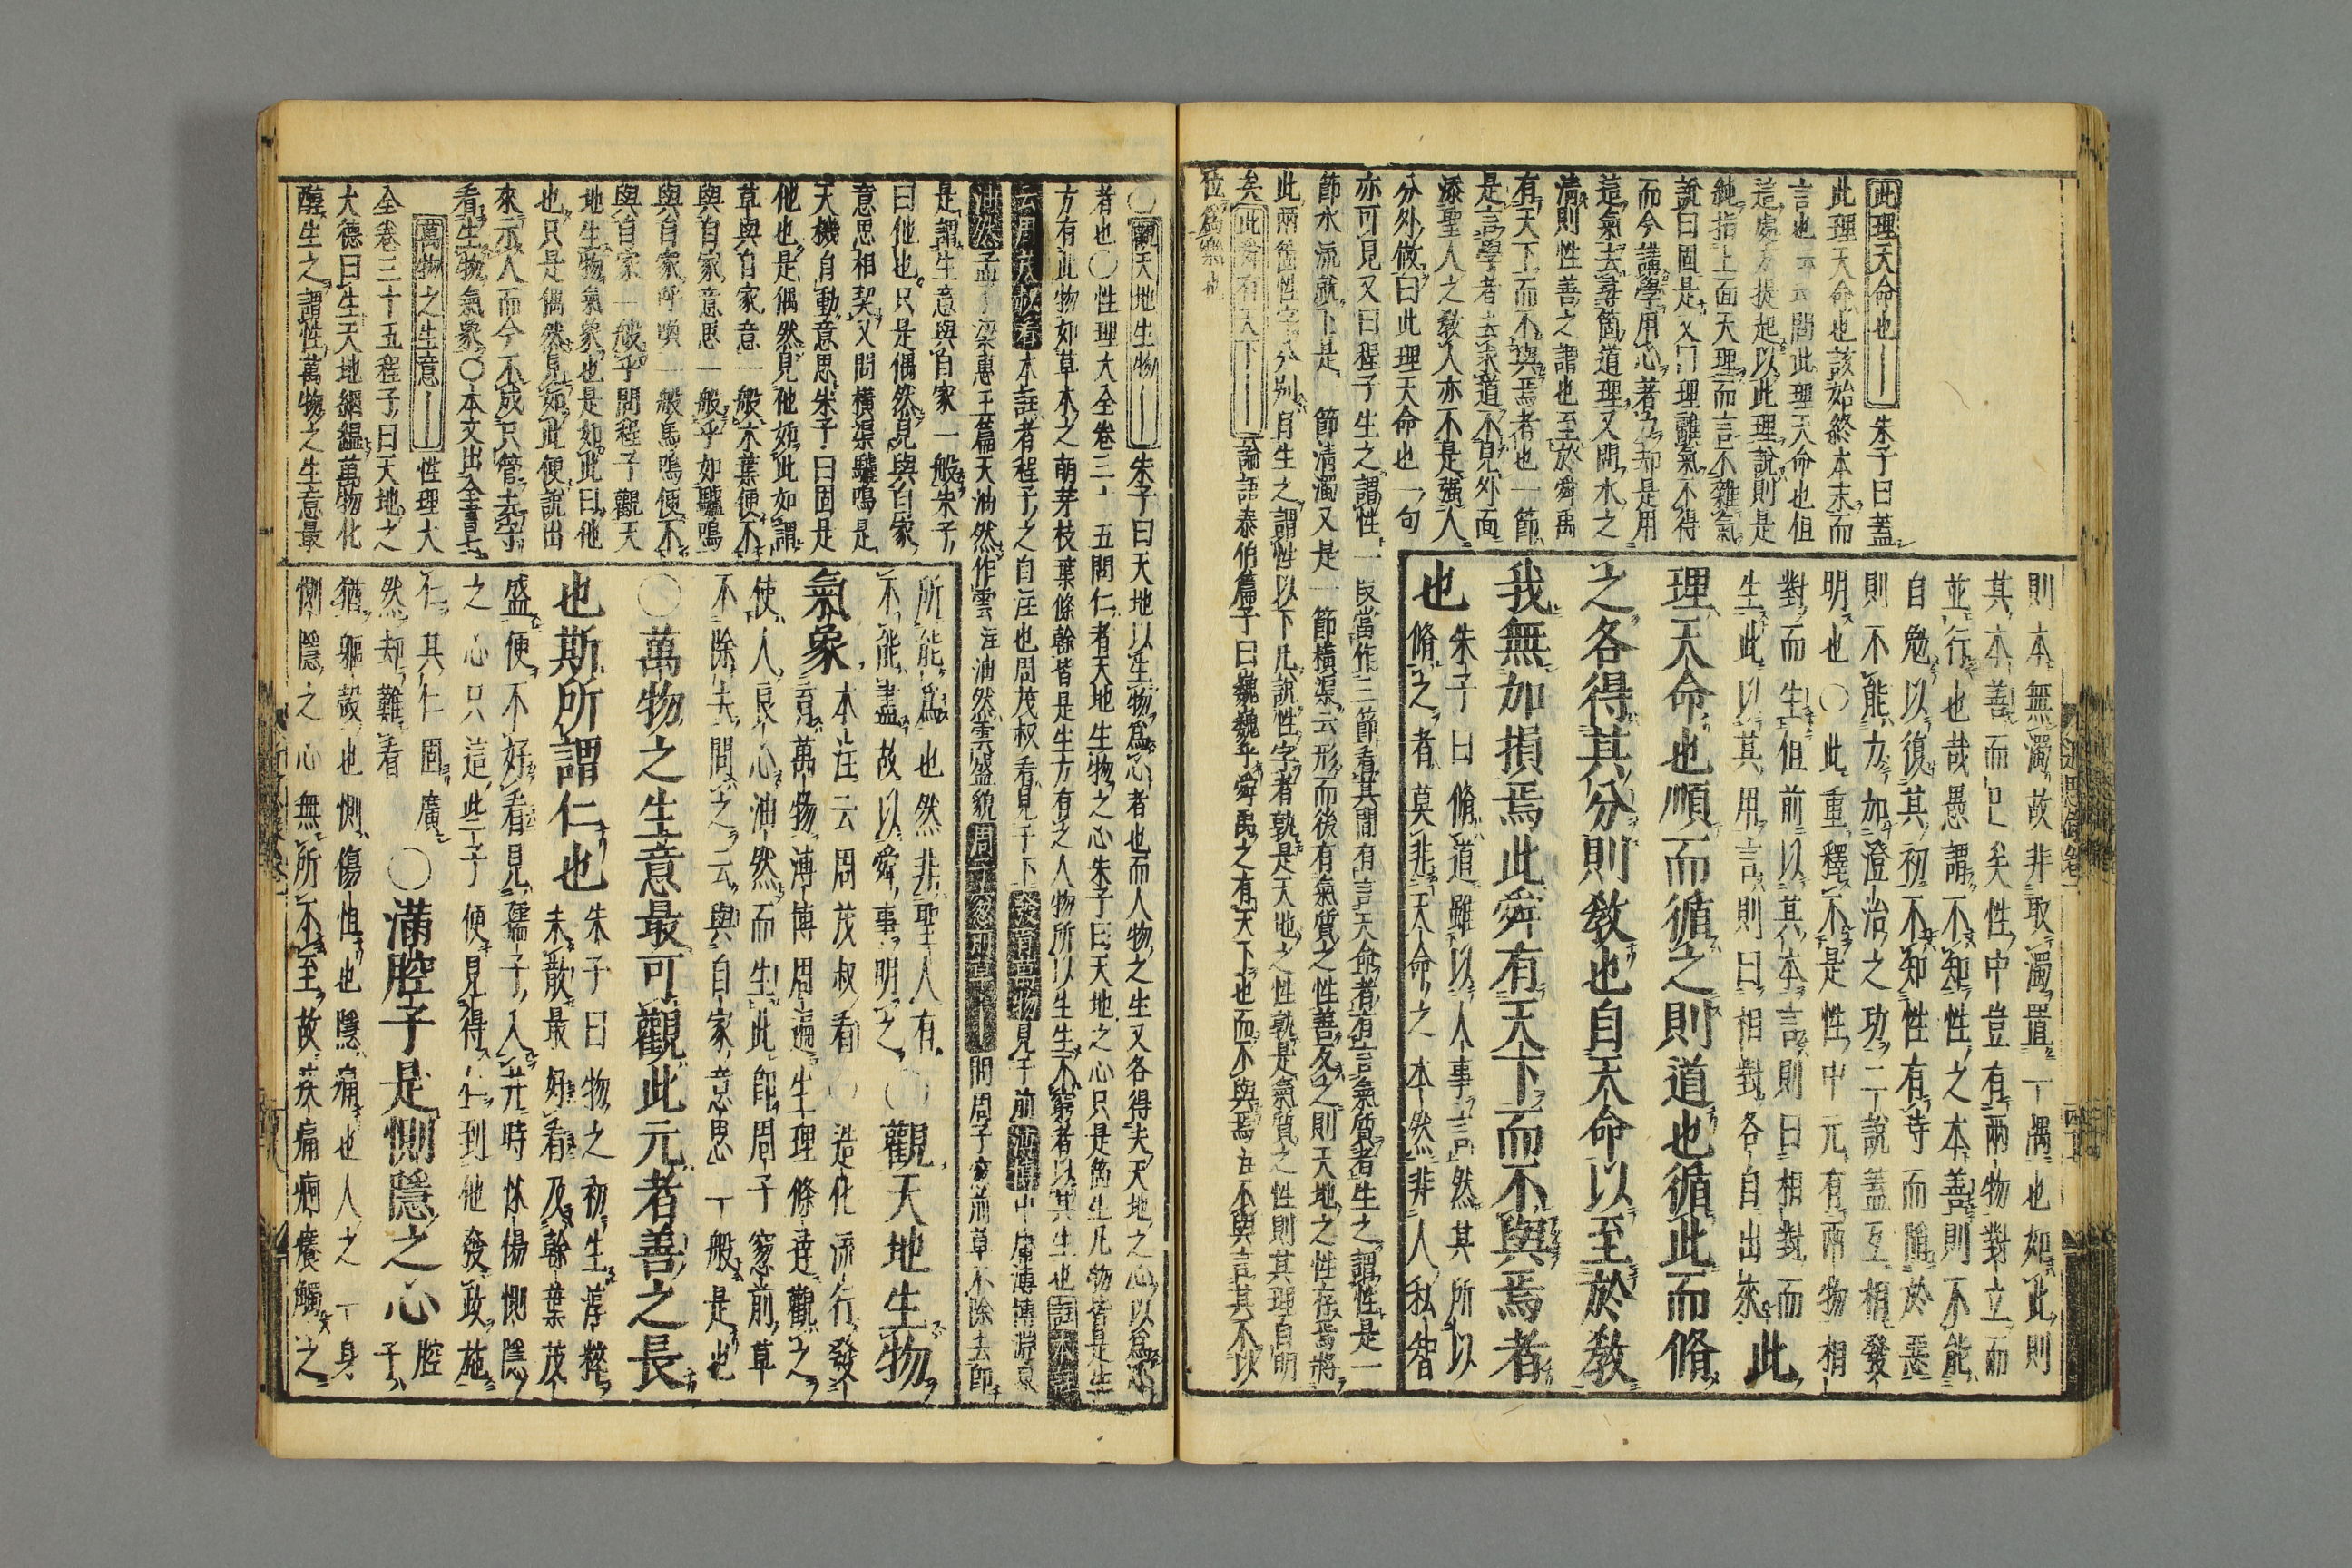 則本無濁故非取濁置一隅也如此則
其本善而已矣性中豈有兩物對立而
並行也哉愚謂不知性之本善則不能
自勉以復其初不知性有時而陷於惡
則不能力加澄治之功二說蓋互相發
明也〇此重釋不是性中元有兩物相
對而生但前以其本言則曰相對而
生此以其用言則曰相對各自出來此
理天命也順而循之則道也循此而脩
之各得其分則敎也自天命以至於敎
我無加損焉此舜有天下而不與焉者
也朱子曰脩道雖以人事言然其所以
脩之者莫非天命之本然非人私智
此理天命也
朱子曰蓋
此理天命也該始終本末而
言也云云問此理天命也但
這處方提起以此理說則是
純指上面天理而言不雜氣
說曰固是又曰理離氣不得
而今講學用心著力却是用
這氣去尋箇道理又問水之
淸則性善之謂也至於舜禹
有天下而不與焉者也一節
是言學者去求道不見外面
添聖人之敎人亦不是强人
分外做曰此理天命也一句
亦可見又曰程子生之謂性一段當作三節看其間有言天命者有言氣質者生之謂性是一
節水流就下是一節淸濁又是一節橫渠云形而後有氣質之性善反之則天地之性存焉將
此兩箇性字分别自生之謂性以下凡說性字者孰是天地之性孰是氣質之性則其理自明
矣
此舜有天下
論語泰伯篇子曰巍巍乎舜禹之有天下也而不與焉註不與言其不以
位爲樂也
〇觀天地生物
朱子曰天地以生物爲心者也而人物之生又各得夫天地之心以爲心
者也〇性理大全卷三十五問仁者天地生物之心朱子曰天地之心只是箇生凡物皆是生
方有此物如草木之萌芽枝葉條幹皆是生方有之人物所以生生不窮者以其生也
云周茂叔看
本註者程子之自注也周茂叔看見于下
發育萬物
見于前
溥博
中庸溥博淵泉
油然
孟子梁惠王篇天油然作雲註油然雲盛貌
問周子窓前草不除去即
是謂生意與自家一般朱子
曰他也只是偶然見與自家
意思相契又問橫渠驢鳴是
天機自動意思朱子曰固是
他也是偶然見他如此如謂
草與自家意一般木葉便不
與自家意思一般乎如驢鳴
與自家呼喚一般馬鳴便不
與自家一般乎問程子觀天
地生物氣象也是如此曰他
也只是偶然見如此便說出
來示人而今不成只管去守
看生物氣象〇本文出全書七
萬物之生意
性理大
全卷三十五程子曰天地之
大德曰生天地絪縕萬物化
醇生之謂性萬物之生意最
所能爲也然非聖人有
不能盡故以舜事明之〇觀天地生物
氣象本注云周茂叔看〇造化流行發
育萬物溥博周遍生理條達觀之
使人良心油然而生此即周子窓前草
不除去問之云與自家意思一般是也
〇萬物之生意最可觀此元者善之長
也斯所謂仁也朱子曰物之初生淳粹
未散最好看及幹葉茂
盛便不好看見孺子入井時怵惕惻隱
之心只這些子便見得仁到他發政施
仁其仁固廣
然却難看〇滿腔子是惻隱之心腔
子
猶軀殼也惻傷怛也隱痛也人之一身
惻隱之心無所不至故疾痛痾癢觸之